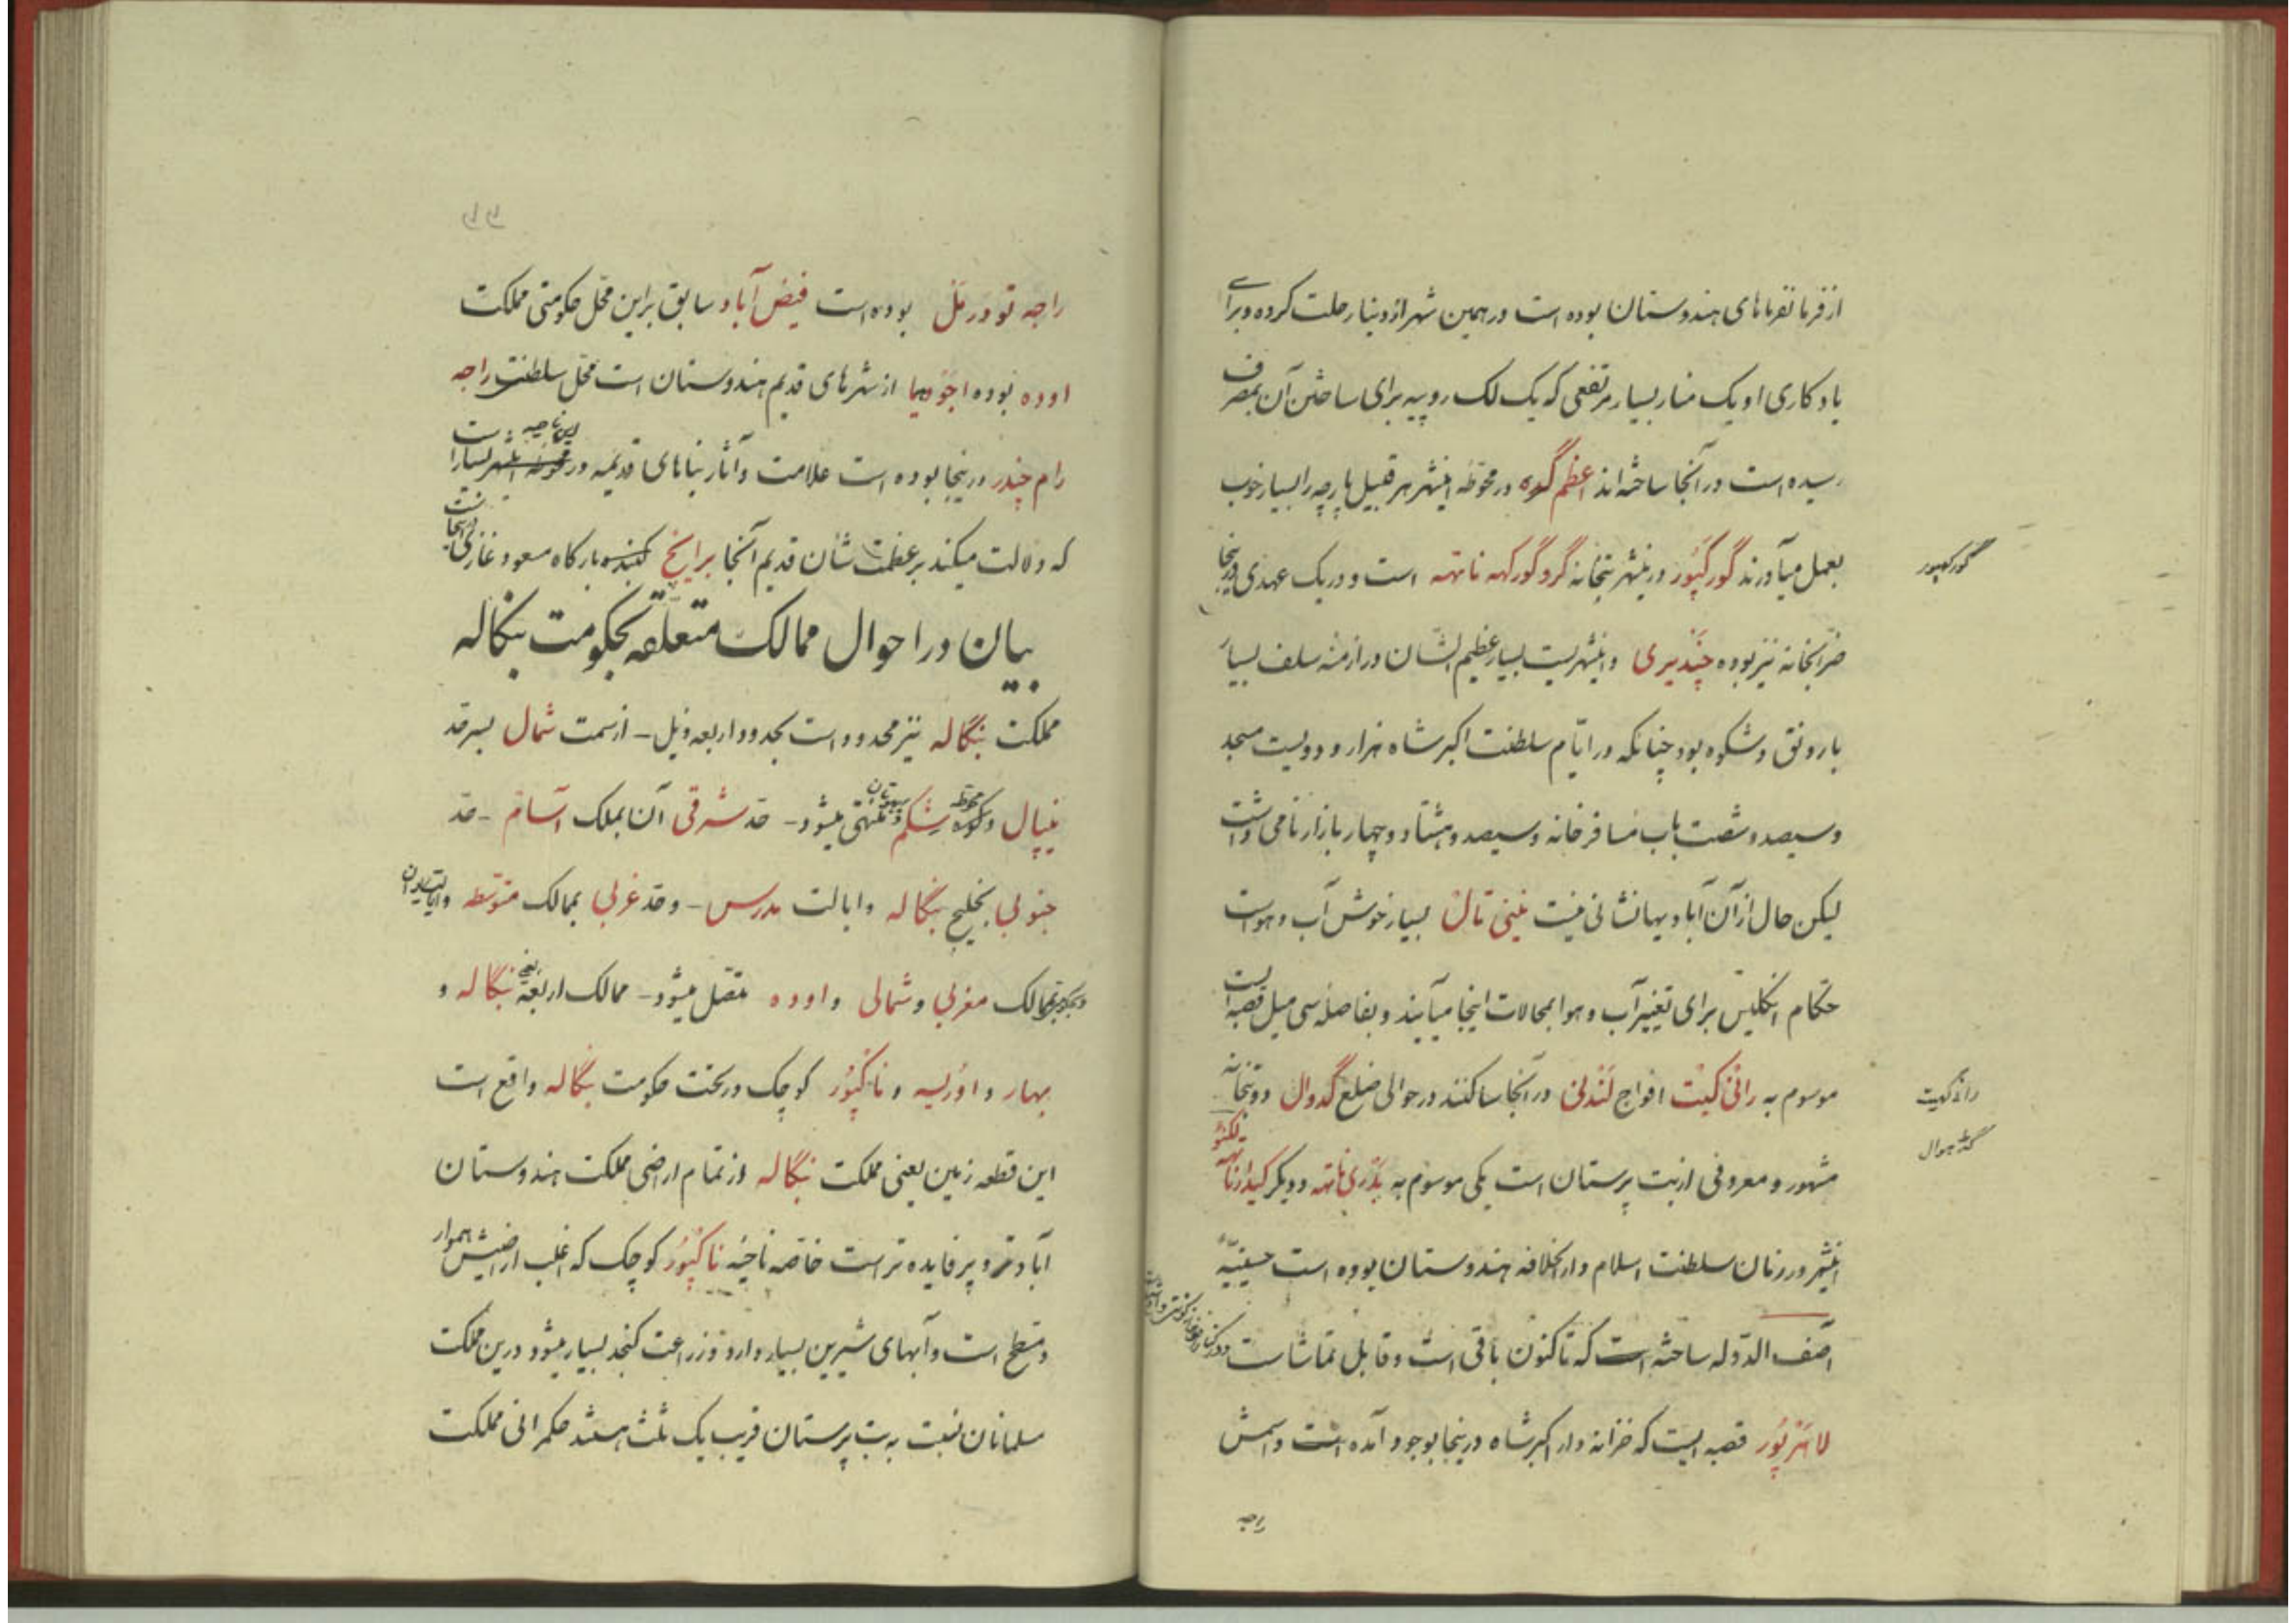 از فرمانفرماهای هندوستان بوده است در همین شهر از دنیا رحلت کرده و برای
یادکاری او یک منار بسیار مرتفعی که یک لک روپیه برای ساختن آن بمصرف
رسیده است در آنجا ساخته‌اند اعظم گده در محوطه اینشهر هر قبیل پارچه را بسیار خوب
بعمل میآورند گورکپور در ینشهر بتخانه گرو گورکهه ناتهه است و در یک عهدی درینجا
گورکهپور
ضرابخانه نیز بوده چندیری و اینشهریست بسیار عظیم الشان در ازمنه سلف بسیار
با رونق و شکوه بود چنانکه در ایام سلطنت اکبر شاه هزار و دویست مسجد
و سیصد و شصت باب مسافرخانه و سیصد و هشتاد و چهار بازار نامی داشت
لیکن حال از آن آبادیها نشانی نیست نینی تال بسیار خوش آب و هواست
حکام انکلیس برای تغییر آب و هوا بمحالات اینجا میآیند و بفاصله سی میل قصبه ایست
موسوم به رانی کیت افواج لندنی در آنجا ساکنند در حوالی ضلع گدوال دو بتخانه
رانی کهیت
گڈهوال
مشهور و معروفی از بت پرستان است یکی موسوم به بدری ناتهه و دیکر کیدارناتهه لکنو
اینشهر در زمان سلطنت اسلام دار الخلافه هندوستان بوده است حسینیه
آصف الدوله ساخته است که تا کنون باقی است و قابل تماشاست
لاهرپور قصبه ایست که خزانه دار اکبر شاه درینجا بوجود آمده است و اسمش
راجه
راجه تودرمل بوده است فیض آباد سابق براین محل حکومتی مملکت
اوده بوده اجودهیا از شهرهای قدیم هندوستان است محل سلطنت راجه
رام چندر درینجا بوده است علامت و آثار بناهای قدیمه در این ناحیه بسیار است
که دلالت میکند بر عظمت شان قدیم آنجا برایخ بارکاه مسعود غازی در اینجاست
بیان در احوال ممالک متعلقه بحکومت بنکاله
مملکت بنگاله نیز محدود است بحدود اربعه ذیل - از سمت شمال بسرحد
نیپال و محوطه شکم و بهوتان منتهی میشود - حد شرقی آن بملک آسام - حد
جنوبی بخلیج بنگاله و ایالت مدرس - و حد غربی بممالک متوسطه
ممالک مغربی و شمالی و اوده متصل میشود - ممالک اربعه یعنی بنگاله و
بهار و اوریسه و ناکپور کوچک در تحت حکومت بنگاله واقع است
این قطعه زمین یعنی مملکت بنگاله از تمام اراضی مملکت هندوستان
آبادتر و پرفایده‌تر است خاصه ناحیه ناکپور کوچک که اغلب اراضیش هموار
و مسطح است و آبهای شیرین بسیار دارد و زراعت کنجد بسیار میشود درین مملکت
مسلمانان نسبت به بت پرستان قریب یک ثلث هستند حکمرانی مملکت